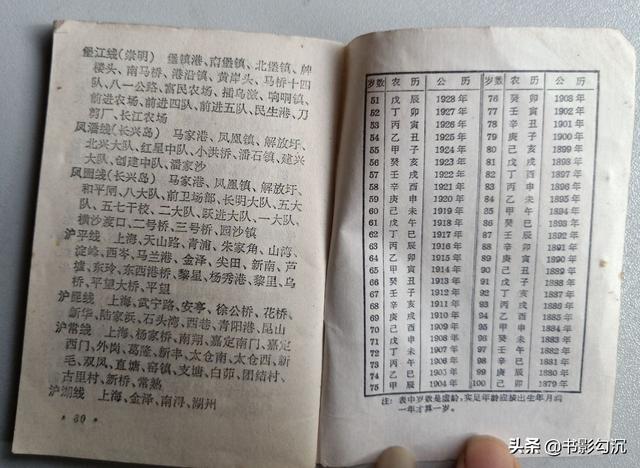 堡江线(崇明) 堡镇港、南堡镇、北堡镇、牌
楼头、南马桥、港沿镇、黄岸头、马桥十四
队、八一公路、富民农场、插鸟激、响哃镇、
前进农场、前进四队、前进五队、民生港、刀
剪厂、长江农场
凤潘线(长兴岛) 马家港、凤凰镇、解放圩、
北兴大队、红星中队、小洪桥、潘石镇、建兴
大队、创建中队、潘家沙
凤圆线(长兴岛) 马家港、凤凰镇、解放圩、
和平闸、八大队、前卫场部、长明大队、五大
队、五七干校、二大队、跃进大队、一大队、
横沙渡口、二号桥、三号桥、圆沙镇
沪平线 上海、天山路、青浦、朱家角、山湾、
淀峰、西岑、马兰港、金泽、尖田、新南、芦
墟、东玲、东西港桥、黎星、杨秀港、黎里、乌
桥、平望大桥、平望
沪昆线 上海、武宁路、安亭、徐公桥、花桥、
新华、陆家浜、石头湾、西巷、青阳港、昆山
沪常线 上海、杨家桥、南翔、嘉定南门、嘉定
西门、外岗、葛隆、新丰、太仓南、太仓西、新
毛、双凤、直塘、窑镇、支塘、白茆、团结村、
古里村、新桥、常熟
沪湖线 上海、金泽、南浔、湖州
· 80 ·
岁数 农历 公历 岁数 农历 公历
51 戊辰 1928年 76 癸卯 1903年
52 丁卯 1927年 77 壬寅 1902年
53 丙寅 1926年 78 辛丑 1901年
54 乙丑 1925年 79 庚子 1900年
55 甲子 1924年 80 己亥 1899年
56 癸亥 1923年 81 戊戌 1898年
57 壬戌 1922年 82 丁酉 1897年
58 辛酉 1921年 83 丙申 1896年
59 庚申 1920年 84 乙未 1895年
60 己未 1919年 85 甲午 1894年
61 戊午 1918年 86 癸巳 1893年
62 丁巳 1917年 87 壬辰 1892年
63 丙辰 1916年 88 辛卯 1891年
64 乙卯 1915年 89 庚寅 1890年
65 甲寅 1914年 90 己丑 1889年
66 癸丑 1913年 91 戊子 1888年
67 壬子 1912年 92 丁亥 1887年
68 辛亥 1911年 93 丙戌 1886年
69 庚戌 1910年 94 乙酉 1885年
70 己酉 1909年 95 甲申 1884年
71 戊申 1908年 96 癸未 1883年
72 丁未 1907年 97 壬午 1882年
73 丙午 1906年 98 辛巳 1881年
74 乙巳 1905年 99 庚辰 1880年
75 甲辰 1904年 100 己卯 1879年
注：表中岁数是虚龄，实足年龄应按出生年月满
一年才算一岁。
头条 @书影勾沉